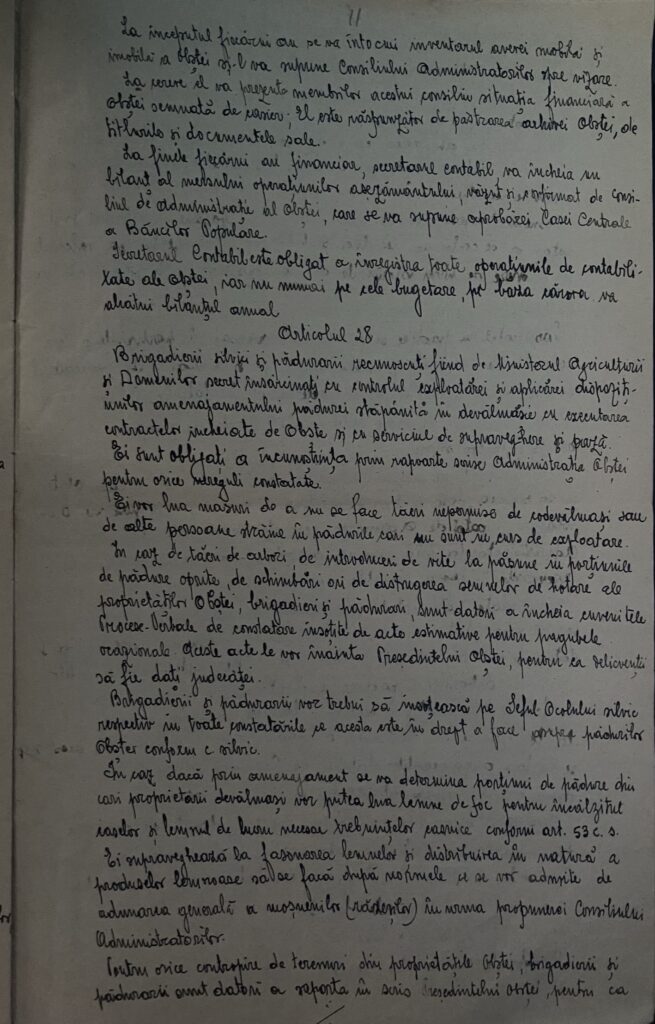 11
La începutul fiecărui an se va întocmi inventarul averei mobilă și
imobilă a Obștei și-l va supune Consiliului Administratorilor spre vizare.
La cerere el va prezenta membrilor acestui consiliu situația financiară a
Obștei semnată de casier; El este răspunzător de păstrarea arhivei Obștei, de
titlurile și documentele sale.
La finele fiecărui an financiar, secretarul contabil, va încheia un
bilanț al mersului operațiunilor așezământului, văzut și confirmat de Consi-
liul de administrație al Obștei, care se va supune aprobărei Casei Centrale
a Băncilor Populare.
Secretarul Contabil este obligat a înregistra toate operațiunile de contabili-
tate ale Obștei, iar nu numai pe cele bugetare, pe baza cărora va
alcătui bilanțul anual
Articolul 28
Brigadierii silvici și pădurarii recunoscuți fiind de Ministerul Agriculturii
și Domenilor sunt însărcinați cu controlul exploatărei și aplicărei dispoziți-
unilor amenajamentului pădurei stăpânită în devălmășie cu executarea
contractelor încheiate de Obște și cu serviciul de supraveghere și pază.
Ei sunt obligați a încunoștința prin rapoarte scrise Administrația Obștei
pentru orice nereguli constatate.
Ei vor lua măsuri de a nu se face tăeri nepermise de codevălmași sau
de alte persoane străine în pădurile cari nu sunt în curs de exploatare.
In caz de tăeri de arbori, de introduceri de vite la pășune în porțiunile
de pădure oprite, de schimbări ori de distrugerea semnelor de hotare ale
proprietăților Obștei, brigadieri și pădurari, sunt datori a încheia cuvenitele
Procese-Verbale de constatare însoțite de acte estimative pentru pagubele
ocazionale. Aceste acte le vor înainta Președintelui Obștei, pentru ca delicvenții
să fie dați judecăței.
Brigadierii și pădurarii vor trebui să însoțească pe Șeful Ocolului silvic
respectiv în toate constatările ce acesta este în drept a face asupra pădurilor
Obștei conform c. silvic.
In caz dacă prin amenajament se va determina porțiuni de pădure din
cari proprietarii devălmași vor putea lua lemne de foc pentru încălzitul
caselor și lemnul de lucru necesar trebuințelor casnice conform art. 53 c. s.
Ei supraveghează la fasonarea lemnelor și distribuirea în natură a
produselor lemnoase să se facă după normele ce se vor admite de
adunarea generală a moșnenilor (răzeșilor) în urma propunerei Consiliului
Administratorilor.
Pentru orice cotropire de terenuri din proprietățile Obștei, brigadierii și
pădurarii sunt datori a raporta în scris Președintelui obștei, pentru ca